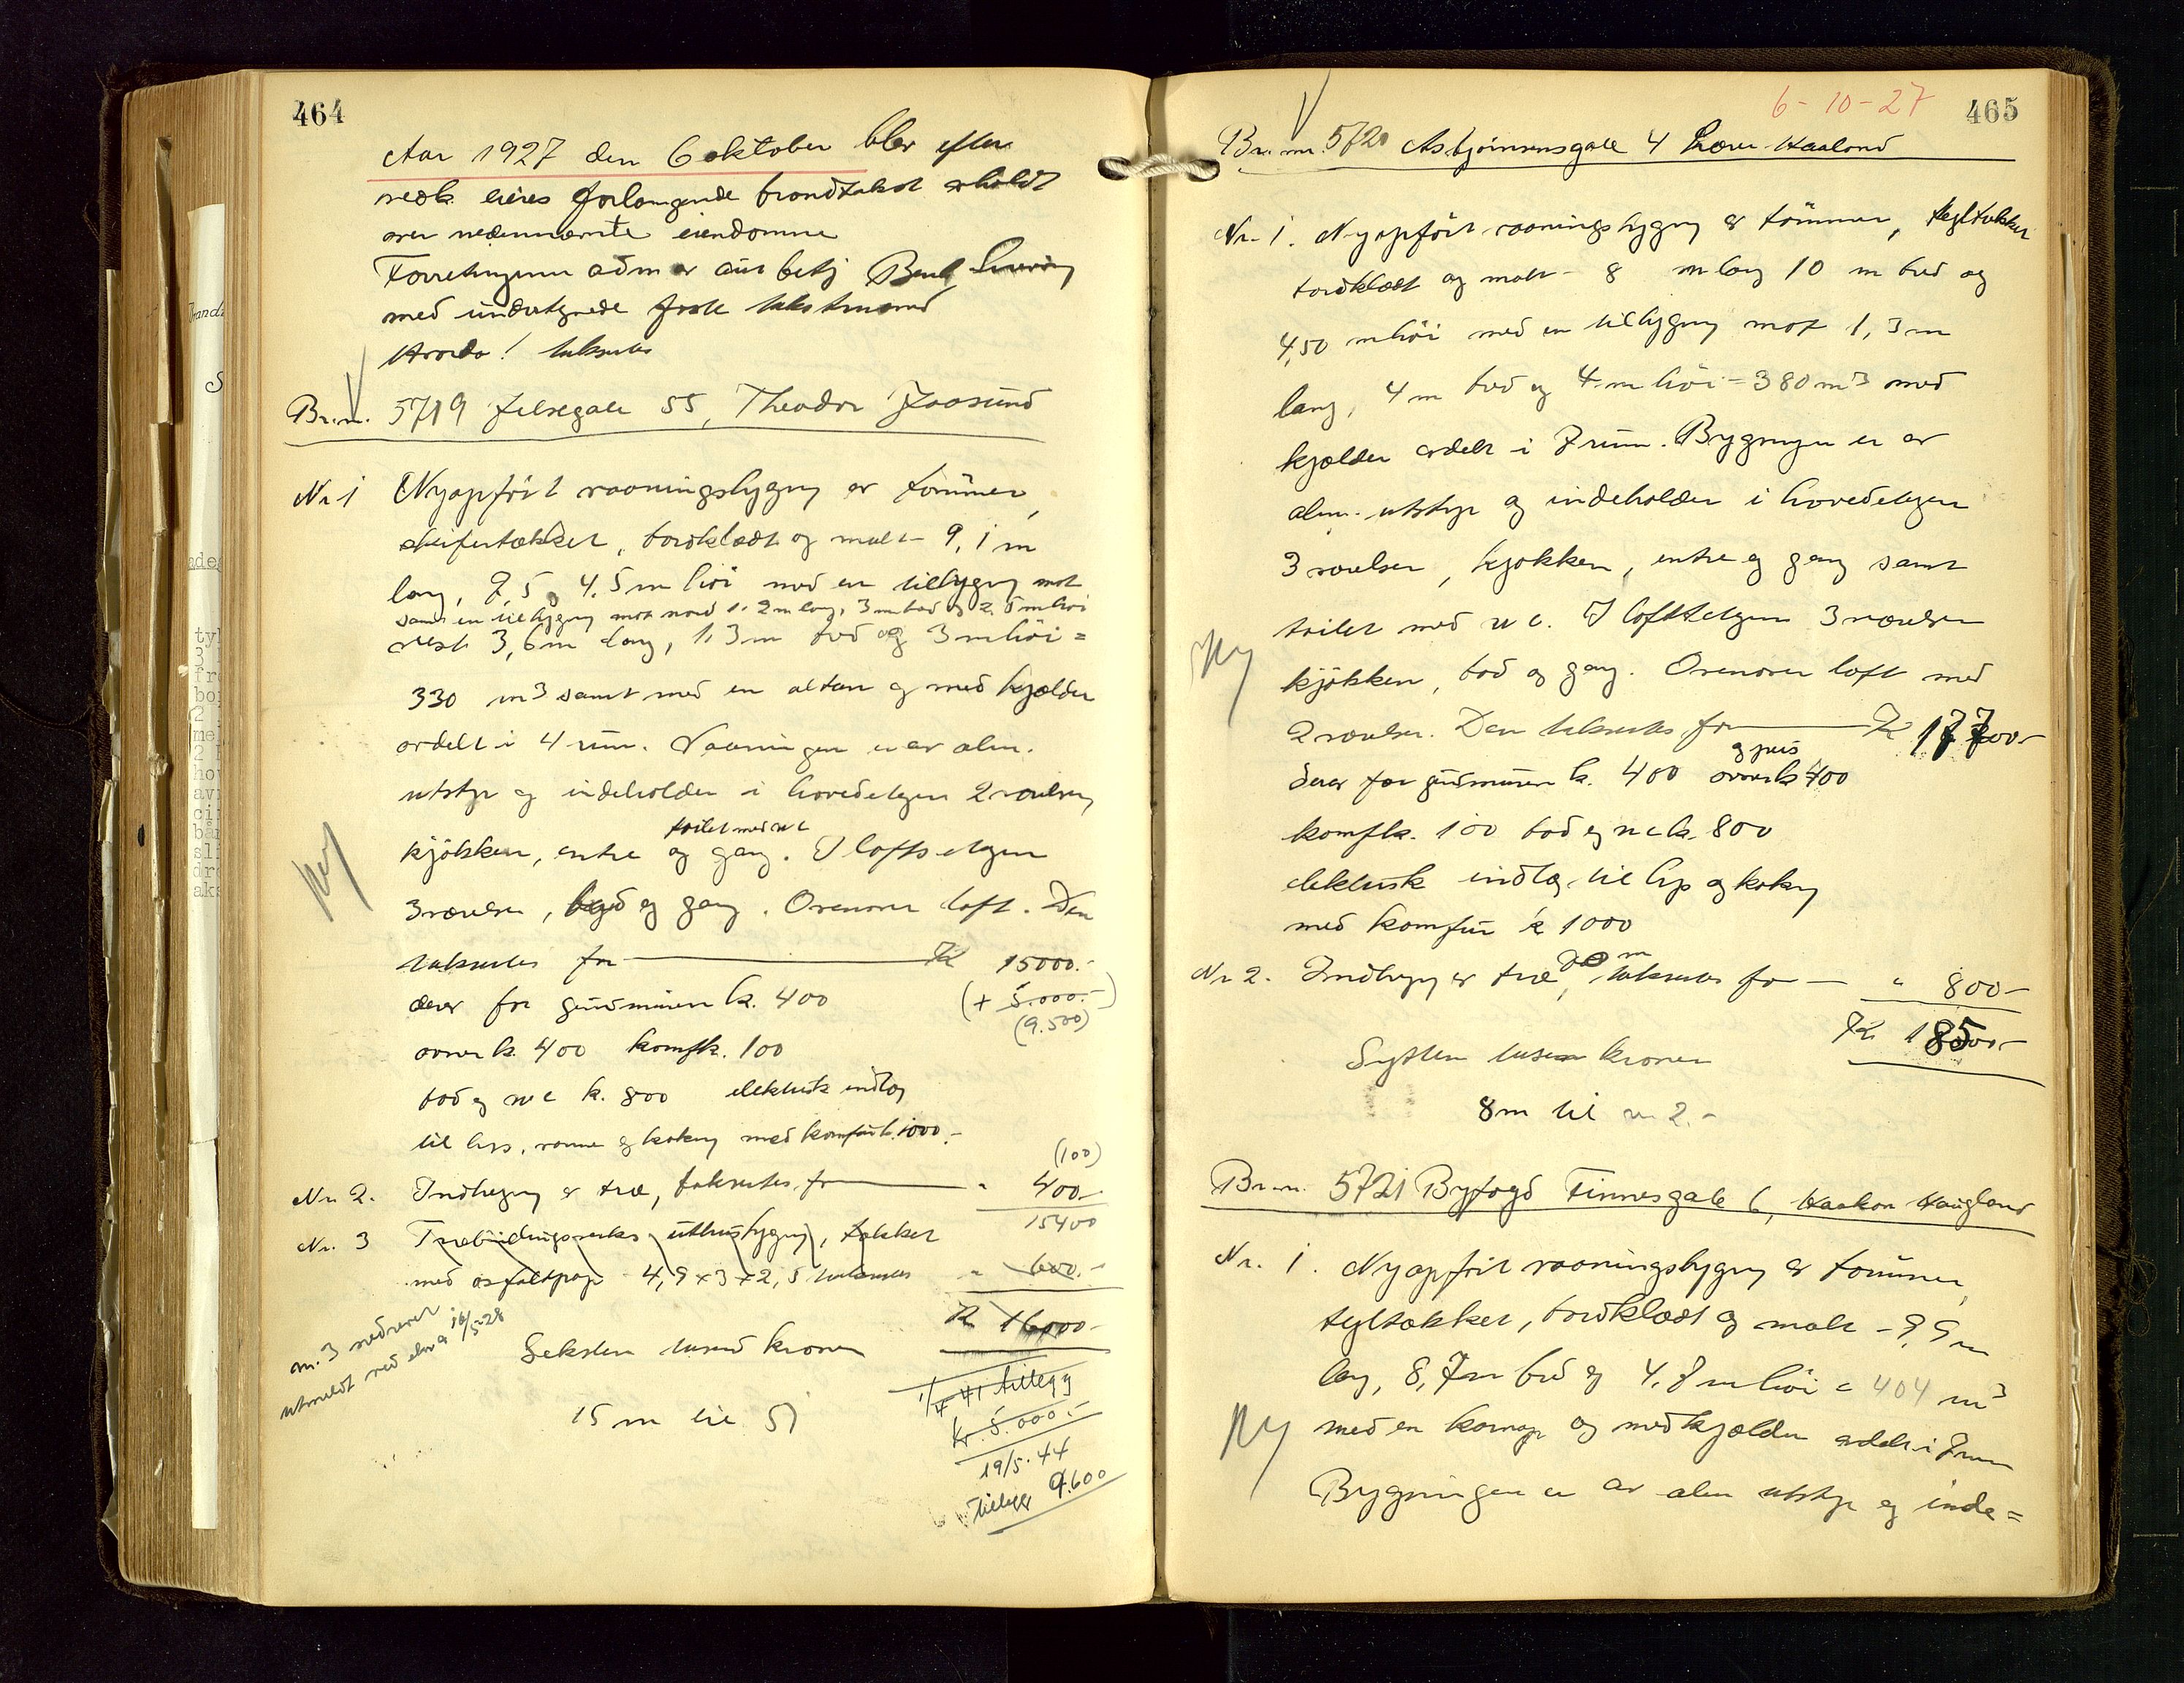 464
Aar 1927 den 6 oktober blev efter
vedk. eieres forlangende brandtakst avholdt
over nedennævnte eiendomme
Forretningen adm av aut betj Bent
med undertegnede faste takstmænd
Hvorda! takseres
Br.n. 5719 Jelsegate 55, Theodor Joasund
Nr 1 Nyopført vaaningsbygng av tømmer,
skifertækket, bordklædt og malt – 9,1 m
lang, 7,5 4,5 m høi med en tilbygng mot
samt en tilbygng mot nord 1.2 m lang, 3 m bred og 2.5 m høi
vest 3,6 m lang, 1,3 m bred og 3 m høi =
330 m3 samt med en altan og med kjælder
avdelt i 4 rum. Vaaningen er av alm.
utstyr og indeholder i hovedetagen 2 værelser,
toilet med wc
kjøkken, entre og gang. I loftsetagen
3 værelser, bod og gang. Ovenover loft. Den
takseres for — Kr 15000.-
derav for grundmuren kr. 400 (+ 5.000.-)
(9.500)
ovner kr. 400 komfkr. 100
bad og wc kr. 800 elektrisk indlæg
til lys, varme og kokng med komfur kr. 1000.-
(100)
Nr. 2. Indhegng av træ, takseres for — " 400.-
15400
Nr. 3 Træbindingsverks uthusbygng, tækket
med asfaltpap – 4,9 x 3 x 2,5 takseres " 600.-
Kr 16000-
nr. 3 nedrevet
utmeldt ved skr av 16/5-28
Seksten tusend kroner
1/4 41 tillegg
kr. 5.000.-
15 m til 51
19/5.44
Tillegg 9.600
6-10-27 465
Br.nr. 5720 Asbjørnsensgate 4 Lærer Haaland
Nr. 1. Nyopført vaaningsbygng av tømmer, tegltækket
bordklædt og malt – 8 m lang 10 m bred og
4,50 m høi med en tilbygng mot 1,3 m
lang, 4 m bred og 4 m høi = 380 m3 med
kjælder avdelt i 7 rum. Bygningen er av
alm. utstyr og indeholder i hovedetagen
3 værelser, kjøkken, entre og gang samt
toilet med wc. I loftsetagen 3 værelser
kjøkken, bod og gang. Ovenover loft med
2 værelser. Den takseres for — Kr 17700.-
og peis
derav for grundmuren kr. 400 ovner kr 400
komfkr. 100 bad og wc kr. 800
elektrisk indlæg til lys og kokng
med komfur kr 1000
Nr 2. Indhegng av træ, takseres for — " 800-
Kr 18500.-
Sytten tusen kroner
8 m til nr 2.-
Br.nr. 5721 Byfogd Finnesgate 6, Haakon Haugland
Nr. 1. Nyopført vaaningsbygng av tømmer,
tegltækket, bordklædt og malt – 9,9 m
lang, 8,7 m bred og 4,7 m høi = 404 m3
med en karnap og med kjælder avdelt i 7 rum
Bygningen er av alm utstyr og inde=
Ny
Ny
Ny